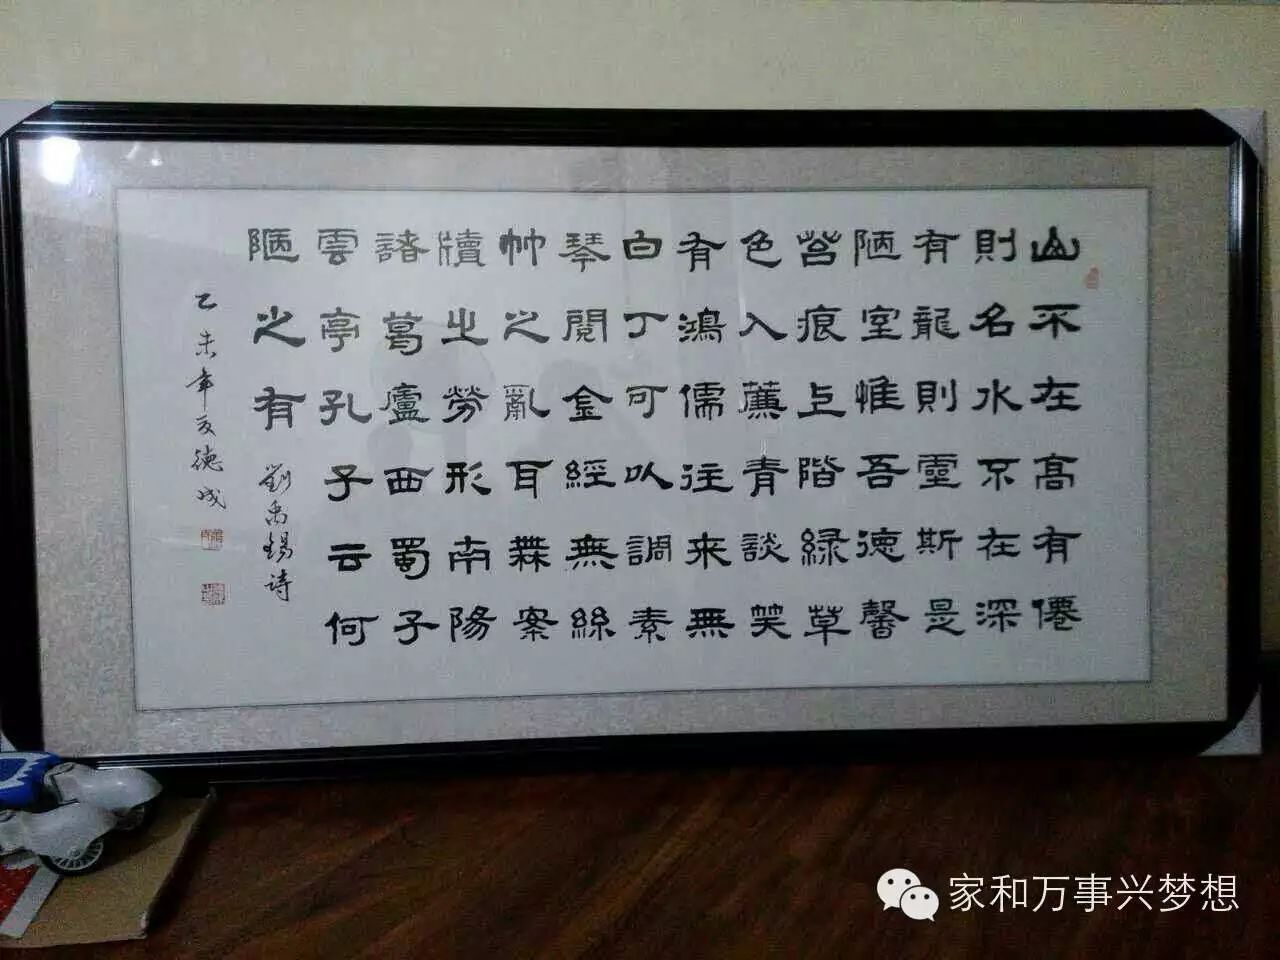 山不在高有僊
則名水不在深
有龍則靈斯是
陋室惟吾德馨
苔痕上階緑草
色入薰青談笑
有鴻儒往来無
白丁可以調素
琴閱金經無絲
竹之亂耳橆案
牘之勞形南陽
諸葛廬西蜀子
雲亭孔子云何
陋之有 劉禹錫詩
乙未年夏德成
家和万事兴梦想